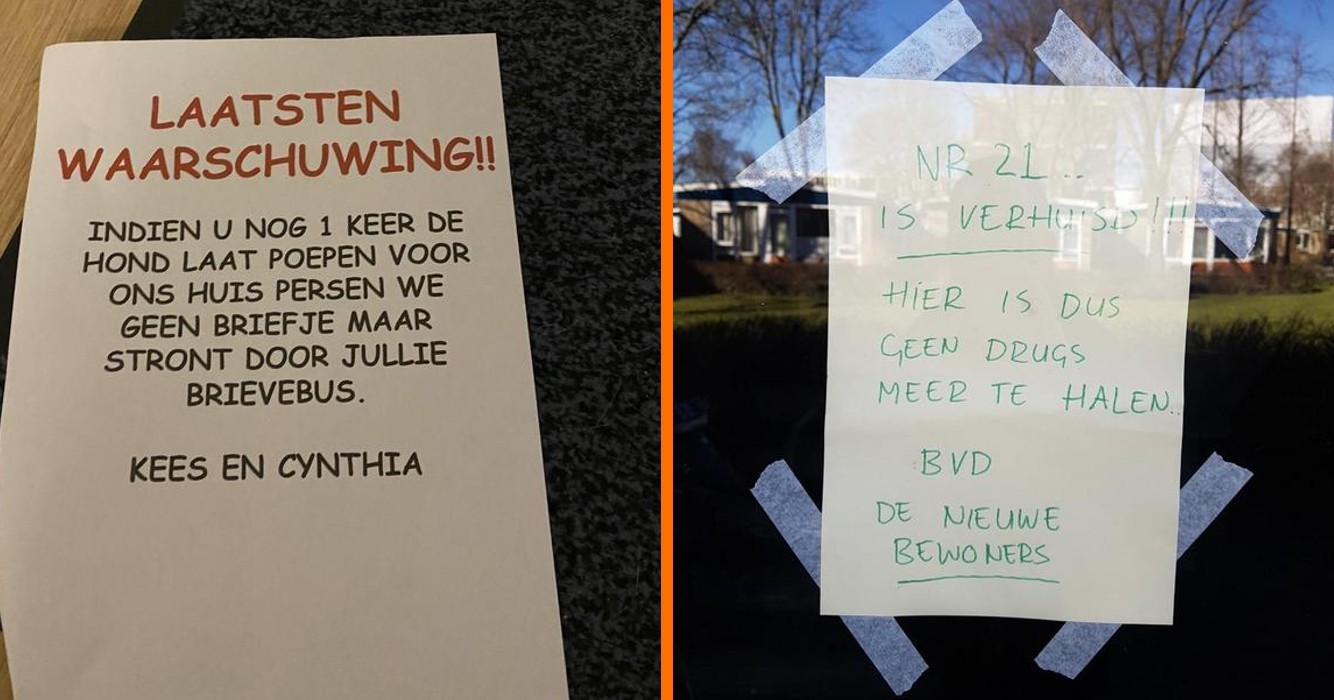 LAATSTEN
WAARSCHUWING!!
INDIEN U NOG 1 KEER DE
HOND LAAT POEPEN VOOR
ONS HUIS PERSEN WE
GEEN BRIEFJE MAAR
STRONT DOOR JULLIE
BRIEVEBUS.
KEES EN CYNTHIA
NR 21..
IS VERHUISD!!!
HIER IS DUS
GEEN DRUGS
MEER TE HALEN..
BVD
DE NIEUWE
BEWONERS